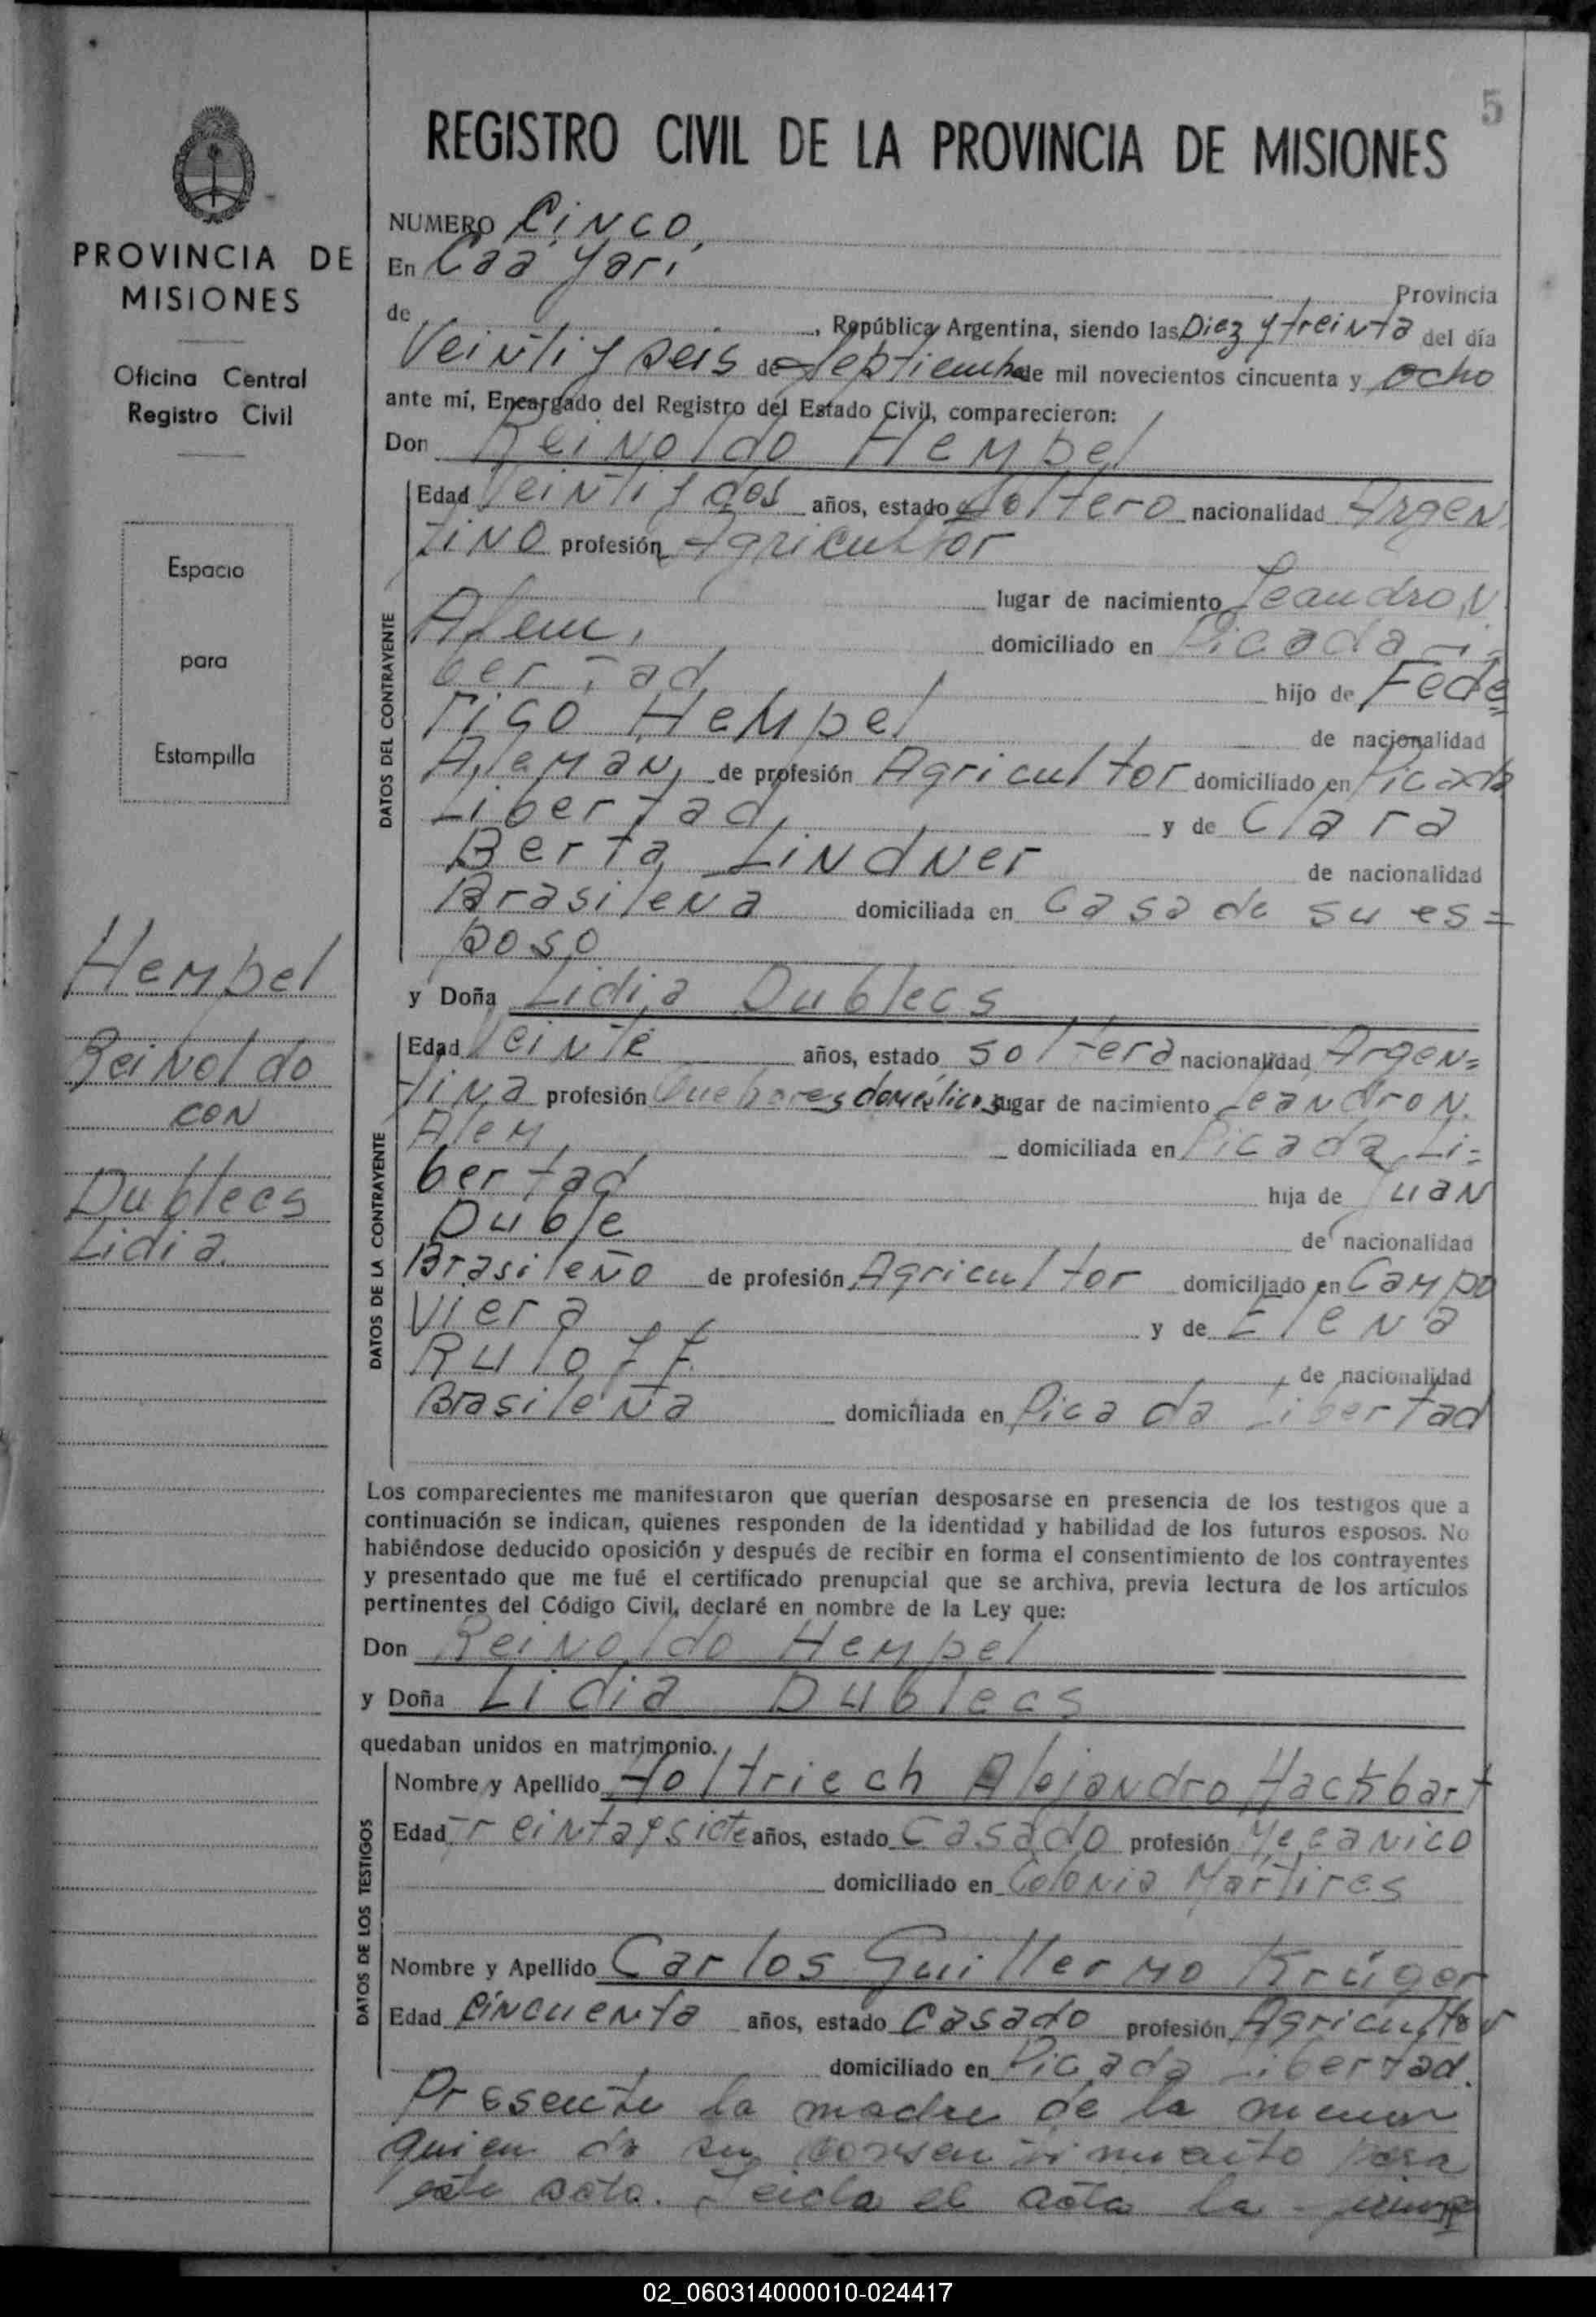 5
REGISTRO CIVIL DE LA PROVINCIA DE MISIONES
PROVINCIA DE
MISIONES
Oficina Central
Registro Civil
Espacio
para
Estampilla
Hempel
Reinoldo
con
Dublecs
Lidia.
NUMERO Cinco,
En Caá Yarí
Provincia
de , República Argentina, siendo las Diez y treinta del día
Veinti y seis de septiembre de mil novecientos cincuenta y ocho
ante mí, Encargado del Registro del Estado Civil, comparecieron:
Don Reinoldo Hempel
DATOS DEL CONTRAYENTE
Edad Veinti y dos años, estado soltero nacionalidad Argen
tino profesión Agricultor
lugar de nacimiento Leandro N.
Alem, domiciliado en Picada Li=
bertad, hijo de Fede=
rico Hempel de nacionalidad
Alemán, de profesión Agricultor domiciliado en Picada
Libertad, y de Clara
Berta Lindner de nacionalidad
Brasileña domiciliada en Casa de su es=
poso
y Doña Lidia Dublecs
DATOS DE LA CONTRAYENTE
Edad Veinte años, estado soltera nacionalidad Argen=
tina profesión Quehaceres domésticos lugar de nacimiento Leandro N.
Alem, domiciliada en Picada Li=
bertad hija de Juan
Duble de nacionalidad
Brasileño de profesión Agricultor domiciliado en Campo
Viera y de Elena
Ruloff. de nacionalidad
Brasileña domiciliada en Picada Libertad
Los comparecientes me manifestaron que querían desposarse en presencia de los testigos que a
continuación se indican, quienes responden de la identidad y habilidad de los futuros esposos. No
habiéndose deducido oposición y después de recibir en forma el consentimiento de los contrayentes
y presentado que me fué el certificado prenupcial que se archiva, previa lectura de los artículos
pertinentes del Código Civil, declaré en nombre de la Ley que:
Don Reinoldo Hempel
y Doña Lidia Dublecs
quedaban unidos en matrimonio.
DATOS DE LOS TESTIGOS
Nombre y Apellido Holtriech Alejandro Hackbart
Edad Treinta y siete años, estado Casado profesión Mecanico
domiciliado en Colonia Mártires
Nombre y Apellido Carlos Guillermo Krüger
Edad Cincuenta años, estado Casado profesión Agricultor
domiciliado en Picada Libertad.
Presente la madre de la menor
quien da su consentimiento para
este acto. Leida el acta la
02_060314000010-024417